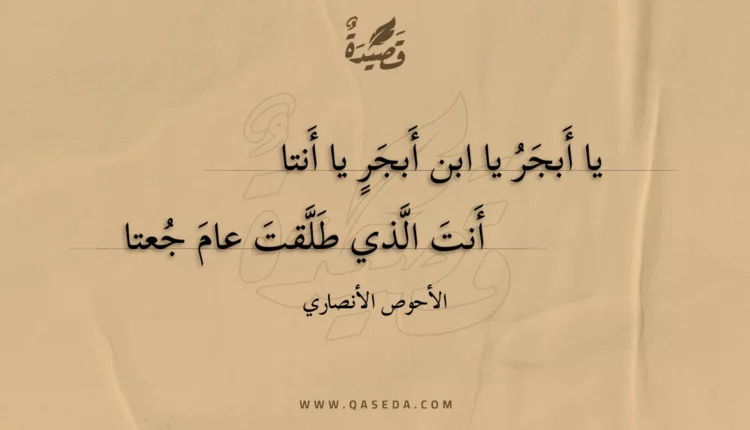 قَصِيدَةٌ
يا أَبجَرُ يا ابن أَبجَرٍ يا أَنتا
أَنتَ الَّذي طَلَّقتَ عامَ جُعتا
الأحوص الأنصاري
WWW.QASEDA.COM